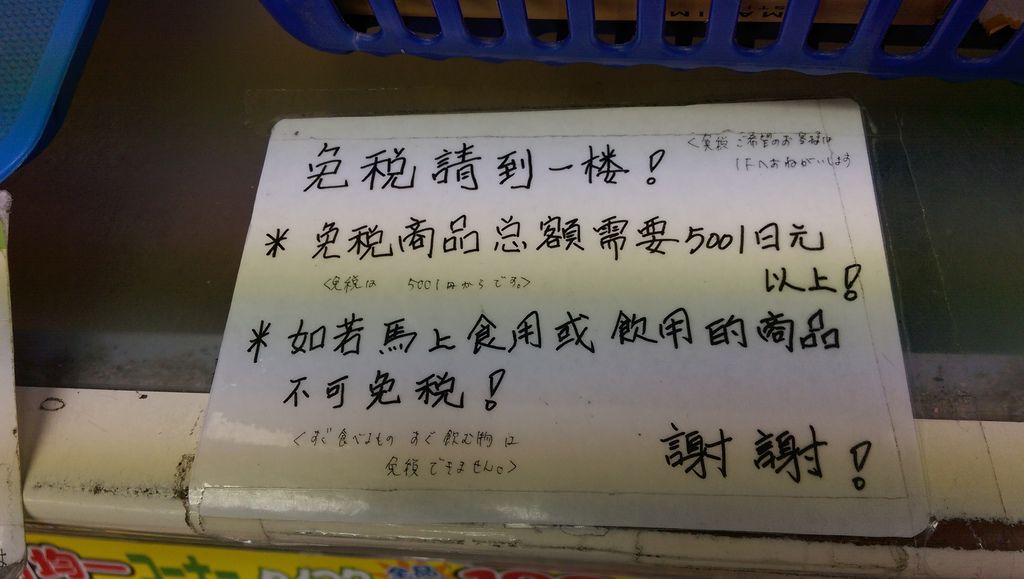 免税請到一楼!
<免税ご希望のお客様は
1Fへおねがいします
* 免税商品总額需要5001日元
以上!
<免税は 5001円からです。>
* 如若馬上食用或飲用的商品
不可免税!
<すぐ食べるもの すぐ飲む物は
免税できません。>
謝謝!
均一コーナー